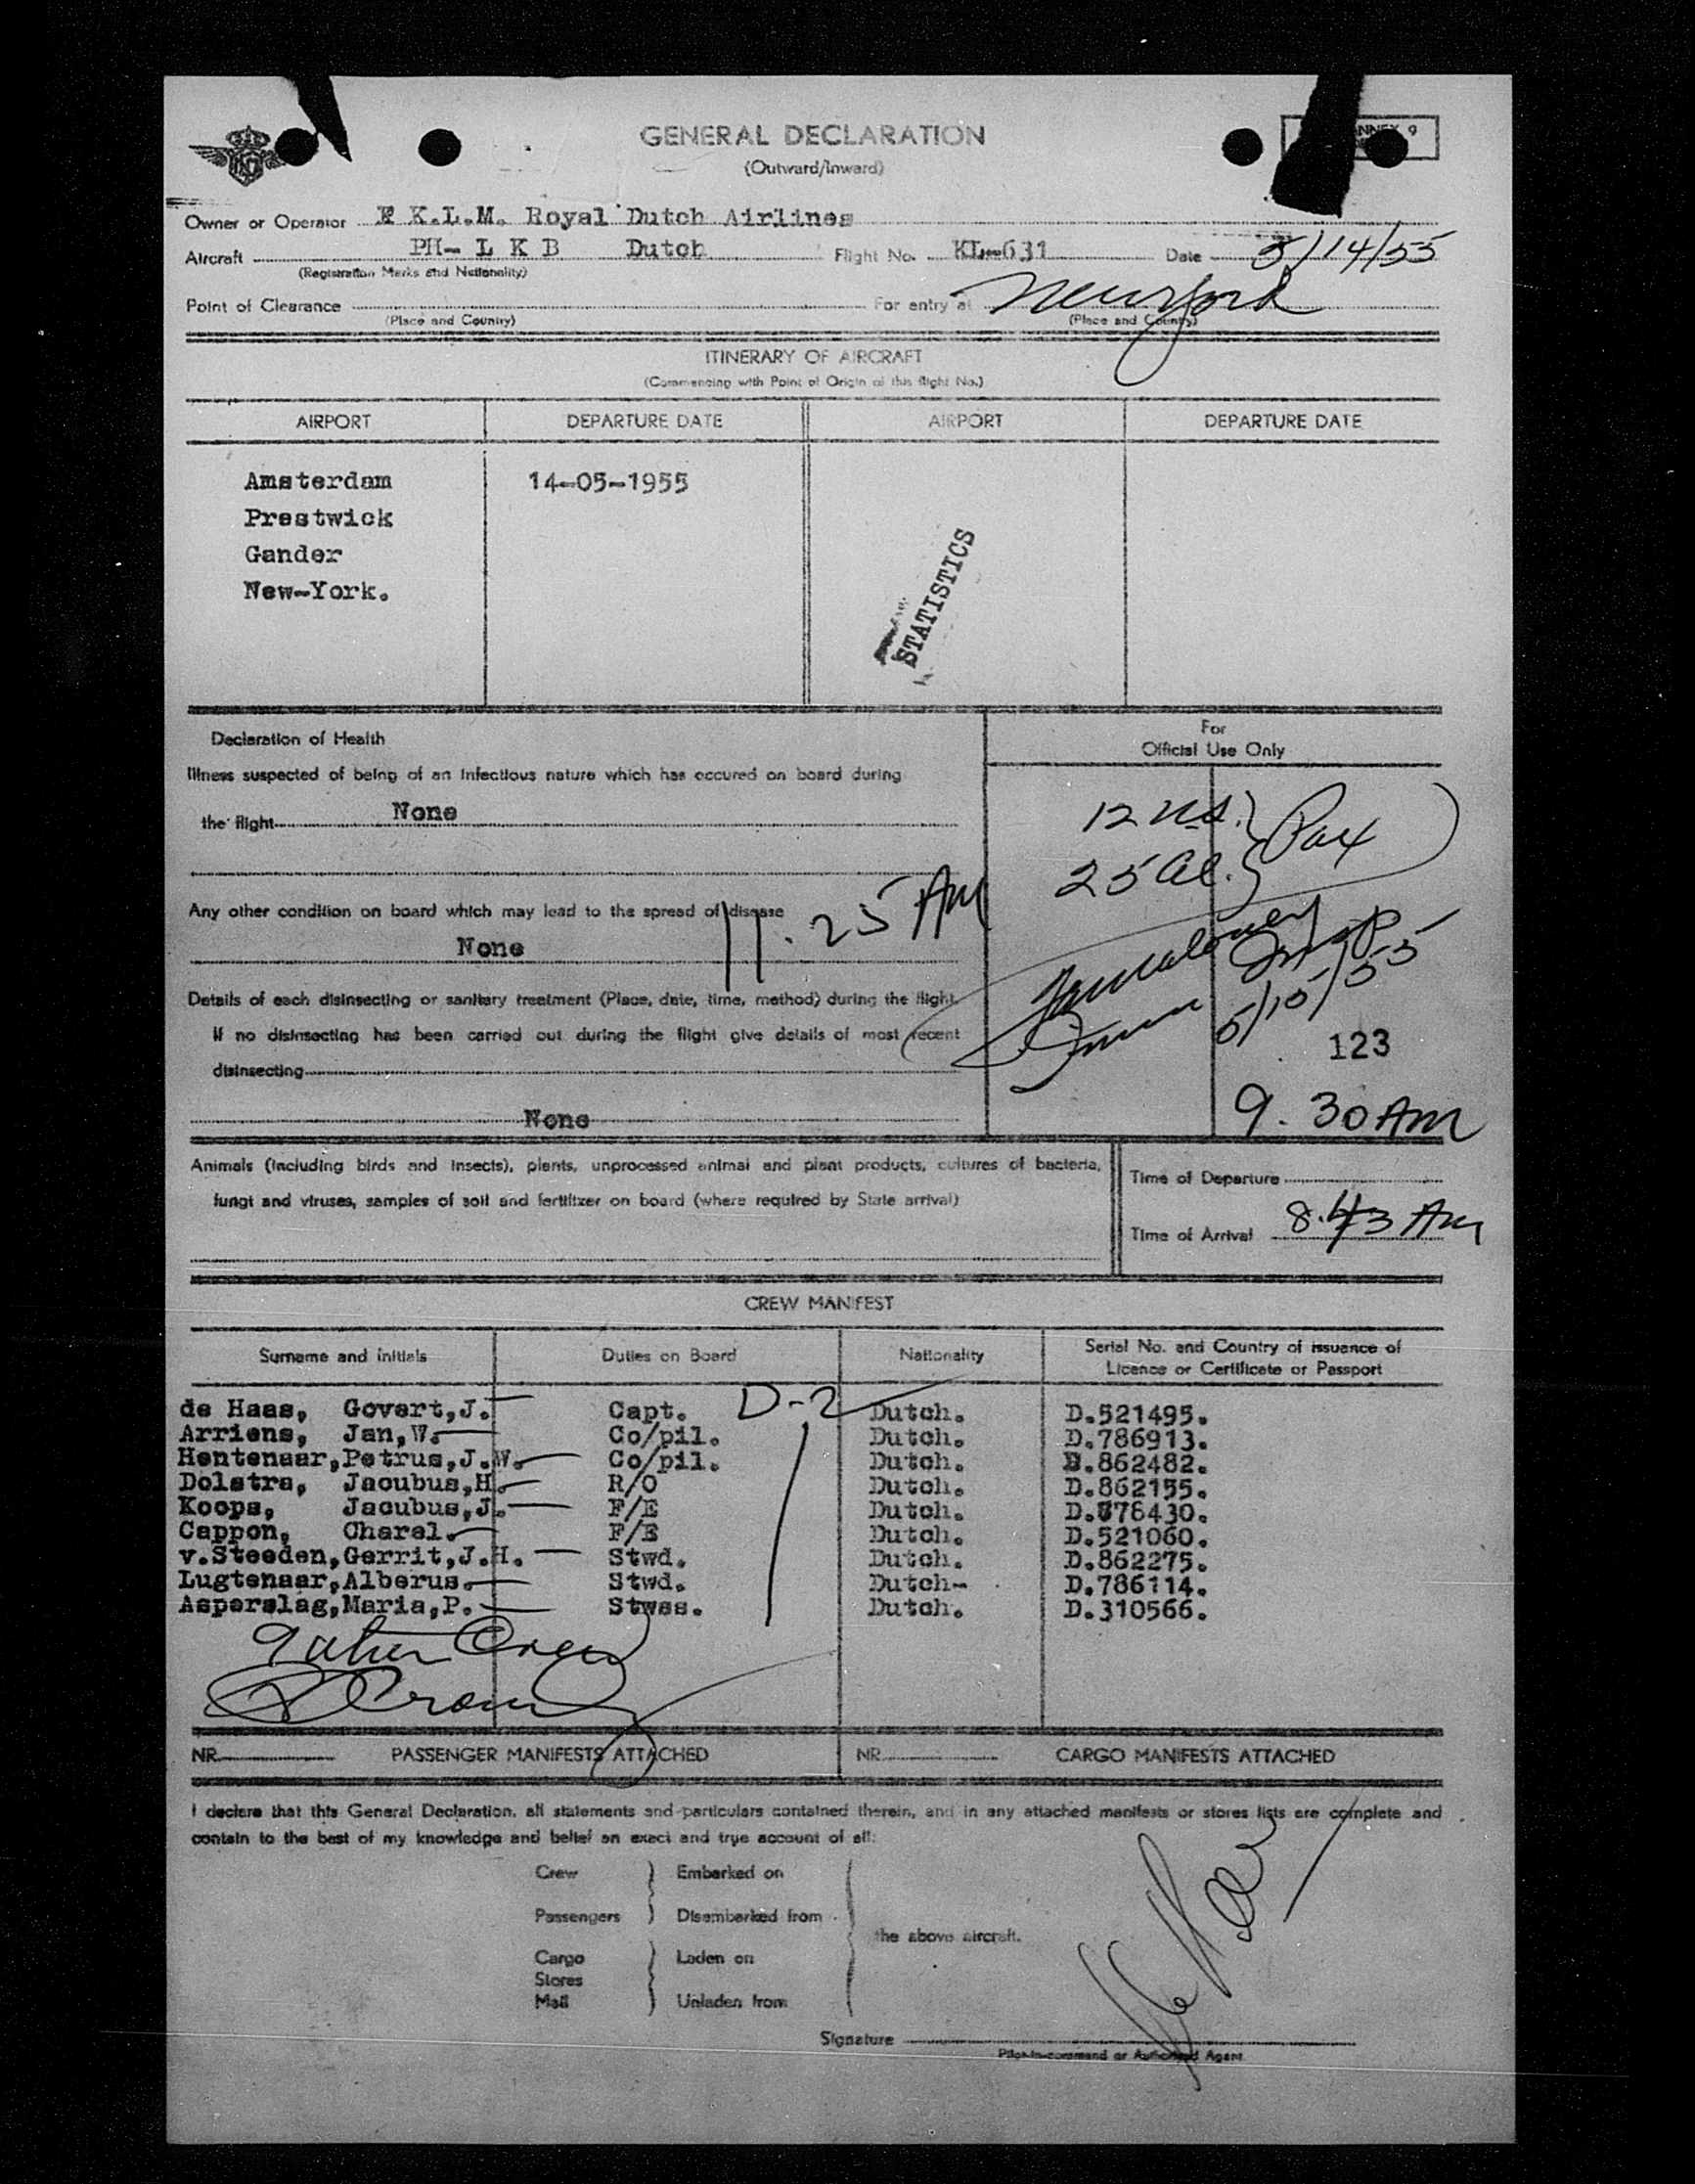 GENERAL DECLARATION
(Outward/Inward)
ANNEX 9
Owner or Operator K.L.M. Royal Dutch Airlines
Aircraft PH- L K B Dutch Flight No. KL-631 Date 5/14/55
(Registration Marks and Nationality)
Point of Clearance For entry at New York
(Place and Country) (Place and Country)
ITINERARY OF AIRCRAFT
(Commencing with Point of Origin of this flight No.)
AIRPORT DEPARTURE DATE AIRPORT DEPARTURE DATE
Amsterdam 14-05-1955
Prestwick
Gander
New-York.
STATISTICS
Declaration of Health
For
Official Use Only
Illness suspected of being of an infectious nature which has occured on board during
the flight None
12 U.S. } Pax
25 Al.
Any other condition on board which may lead to the spread of disease
11.25 AM
None
Details of each disinsecting or sanitary treatment (Place, date, time, method) during the flight.
If no disinsecting has been carried out during the flight give details of most recent
disinsecting
5/15/55
123
9.30 AM
None
Animals (including birds and insects), plants, unprocessed animal and plant products, cultures of bacteria,
fungi and viruses, samples of soil and fertilizer on board (where required by State arrival)
Time of Departure
Time of Arrival 8.43 AM
CREW MANIFEST
Surname and initials Duties on Board Nationality Serial No. and Country of issuance of
Licence or Certificate or Passport
D-2
de Haas, Govert,J. Capt. Dutch. D.521495.
Arriens, Jan,W. Co/pil. Dutch. D.786913.
Hentenaar,Petrus,J.W. Co/pil. Dutch. D.862482.
Dolstra, Jacubus,H. R/O Dutch. D.862155.
Koops, Jacubus,J. F/E Dutch. D.878430.
Cappon, Charel. F/E Dutch. D.521060.
v.Steeden,Gerrit,J.H. Stwd. Dutch. D.862275.
Lugtenaar,Alberus. Stwd. Dutch- D.786114.
Asperslag,Maria,P. Stwss. Dutch. D.310566.
9 alien Crew
NR. PASSENGER MANIFESTS ATTACHED NR. CARGO MANIFESTS ATTACHED
I declare that this General Declaration, all statements and particulars contained therein, and in any attached manifests or stores lists are complete and
contain to the best of my knowledge and belief an exact and true account of all:
Crew } Embarked on
Passengers } Disembarked from
the above aircraft.
Cargo } Laden on
Stores
Mail } Unladen from
Signature de Haas
Pilot-in-command or Authorised Agent